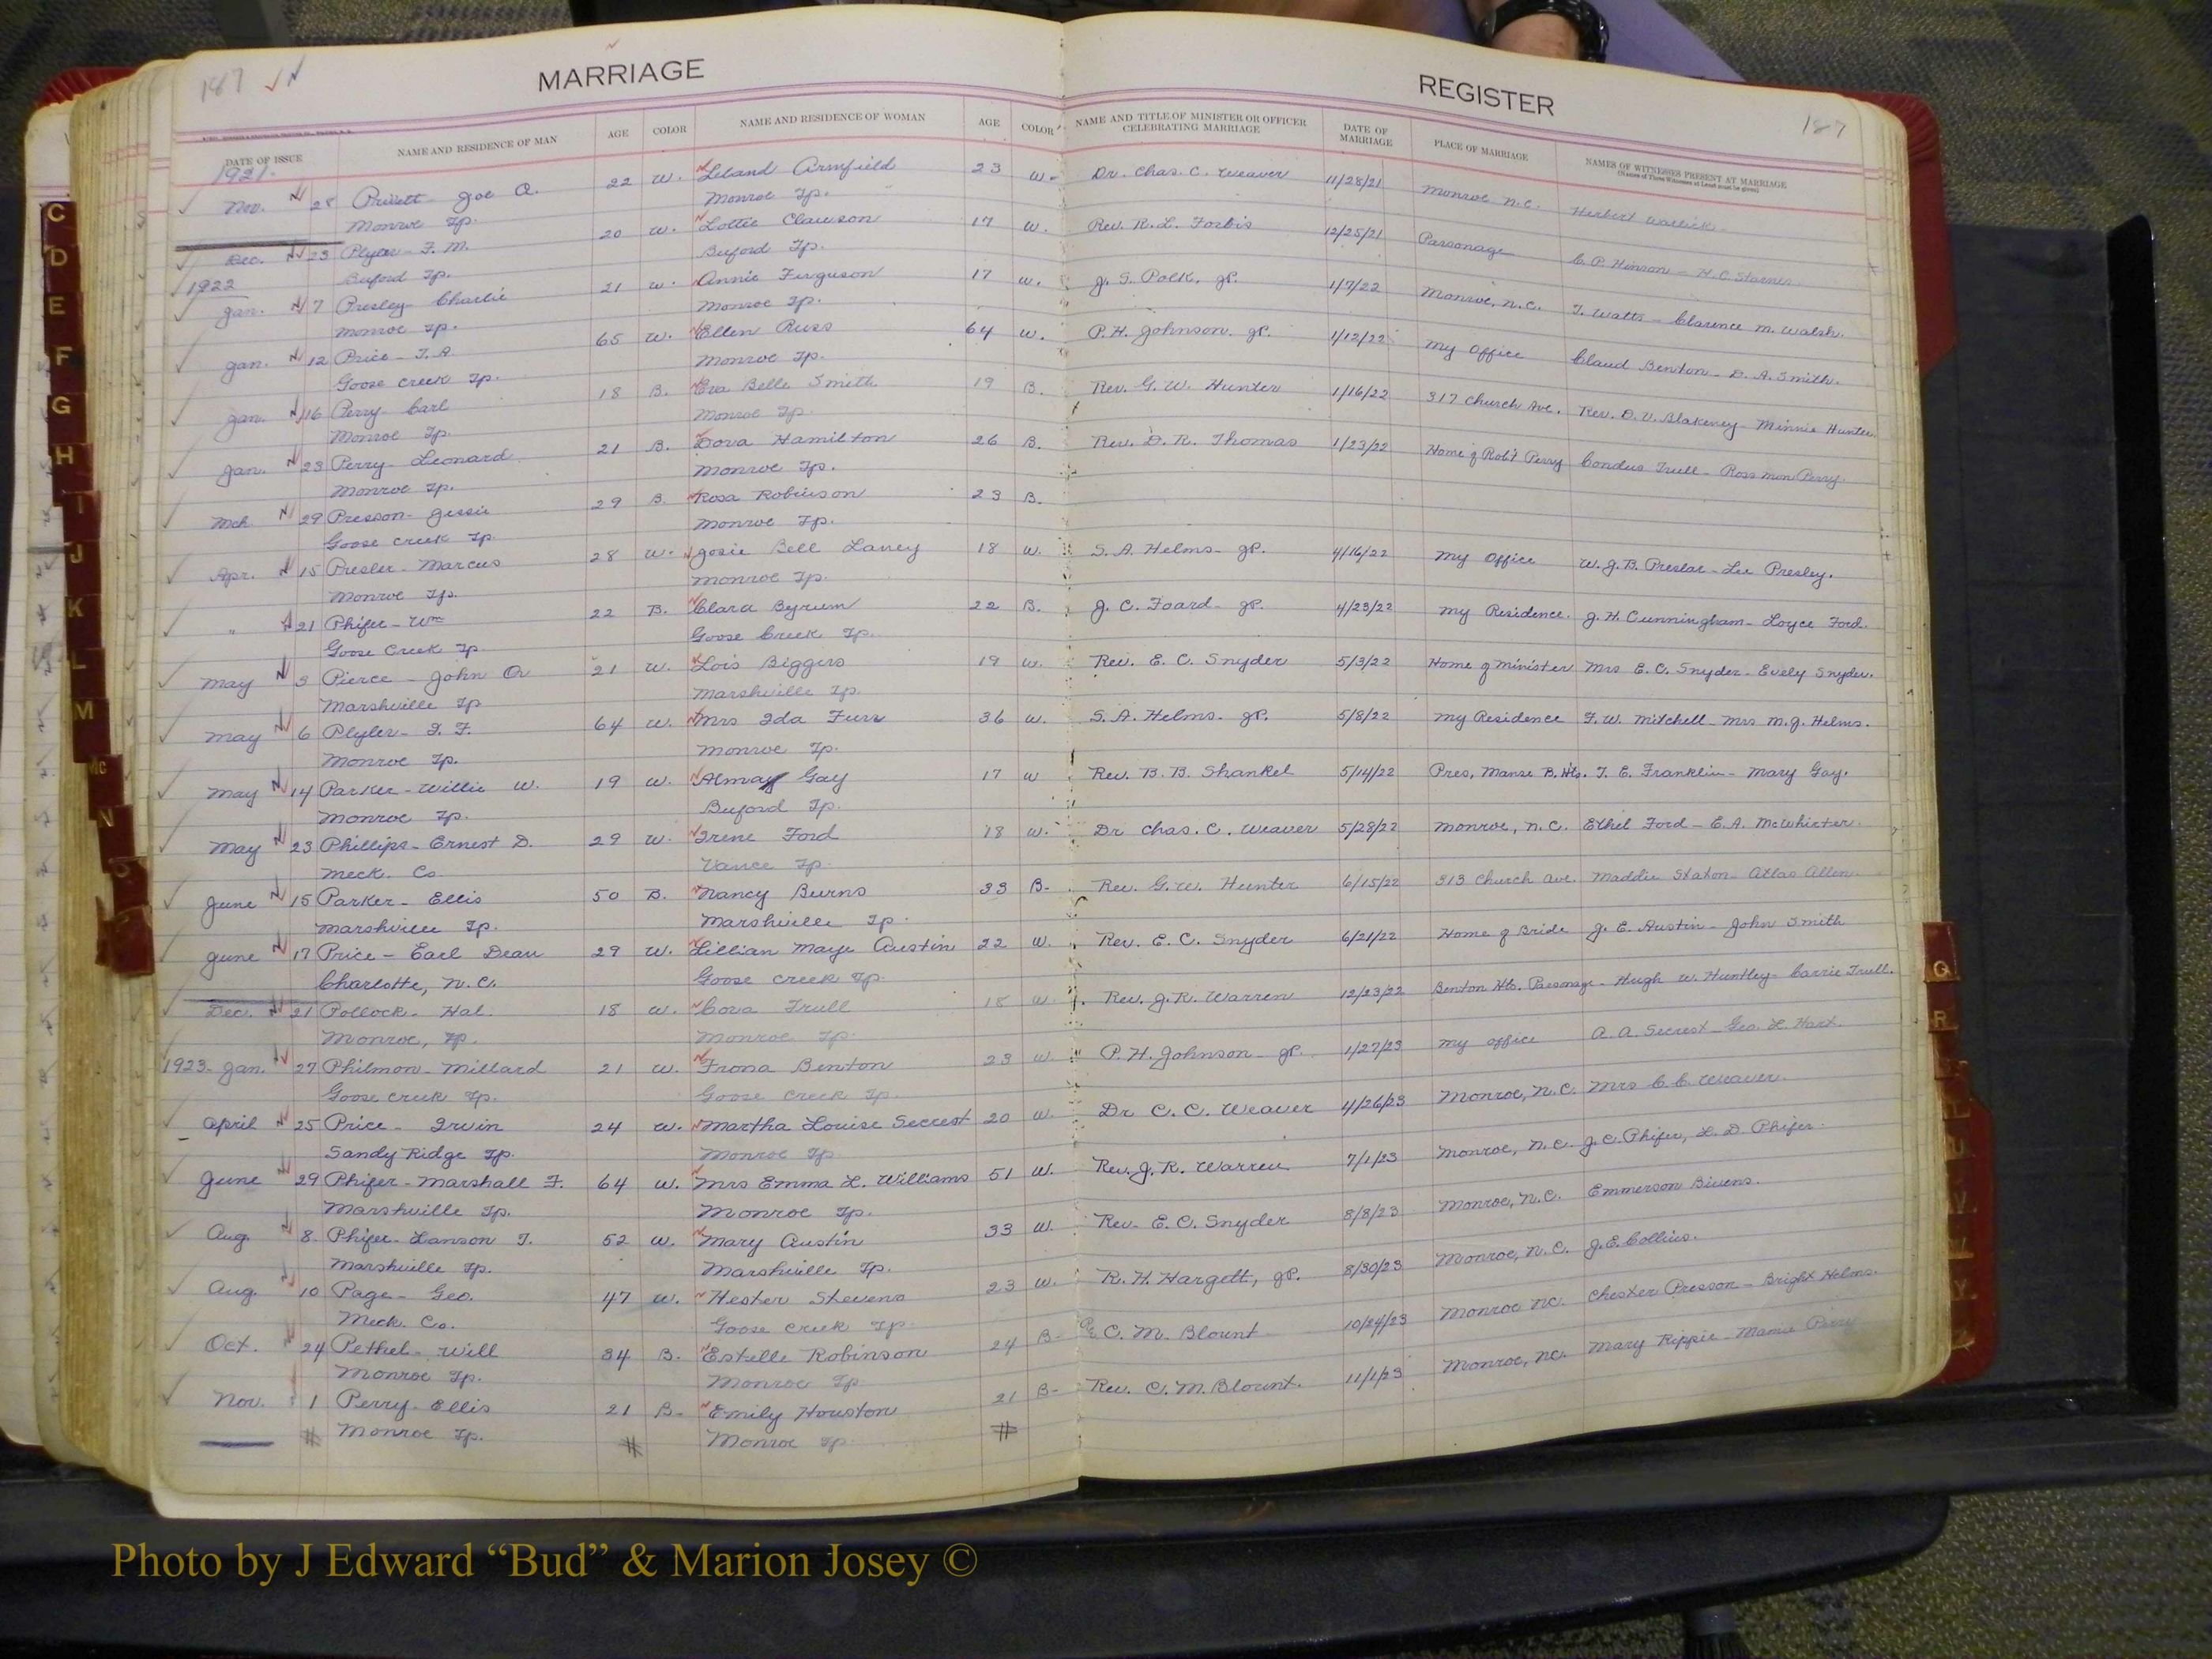 187
MARRIAGE
REGISTER
187
DATE OF ISSUE NAME AND RESIDENCE OF MAN AGE COLOR NAME AND RESIDENCE OF WOMAN AGE COLOR NAME AND TITLE OF MINISTER OR OFFICER CELEBRATING MARRIAGE DATE OF MARRIAGE PLACE OF MARRIAGE NAMES OF WITNESSES PRESENT AT MARRIAGE
(Names of Three Witnesses at Least must be given)
1921.
Nov. 28 Privett - Joe A. 22 W. Leland Armfield 23 W. Dr. Chas. C. Weaver 11/28/21 Monroe N.C. Herbert
Monroe Tp. Monroe Tp.
Dec. 23 Plyler - F. M. 20 W. Lottie Clawson 17 W. Rev. R. L. Forbis 12/25/21 Parsonage C. P. Hinson - H. C. Starnes
Buford Tp. Buford Tp.
1922
Jan. 7 Presley - Charlie 21 W. Annie Ferguson 17 W. J. S. Polk, JP. 1/7/22 Monroe, N.C. T. Watts - Clarence M. Walsh.
Monroe Tp. Monroe Tp.
Jan. 12 Price - T. A. 65 W. Ellen Russ 64 W. P. H. Johnson JP. 1/12/22 My Office Claud Benton - D. A. Smith.
Goose Creek Tp. Monroe Tp.
Jan. 16 Perry - Carl 18 B. Eva Belle Smith 19 B. Rev. G. W. Hunter 1/16/22 317 Church Ave. Rev. D. V. Blakeney - Minnie Hunter
Monroe Tp. Monroe Tp.
Jan. 23 Perry - Leonard 21 B. Dova Hamilton 26 B. Rev. D. R. Thomas 1/23/22 Home of Rob't Perry Condus Trull - Rossmon Perry.
Monroe Tp. Monroe Tp.
Mch. 29 Presson - Jessie 29 B. Rosa Robinson 23 B.
Goose Creek Tp Monroe Tp.
Apr. 15 Presler - Marcus 28 W. Josie Bell Laney 18 W. S. A. Helms - JP. 4/16/22 My Office W. J. B. Preslar - Lee Presley.
Monroe Tp. Monroe Tp.
" 21 Phifer - Wm 22 B. Clara Byrum 22 B. J. C. Foard - JP. 4/23/22 My Residence. J. H. Cunningham - Loyce Ford.
Goose Creek Tp Goose Creek Tp.
May 3 Pierce - John A. 21 W. Lois Biggers 19 W. Rev. E. C. Snyder 5/3/22 Home of Minister Mrs E. C. Snyder - Evely Snyder.
Marshville Tp Marshville Tp.
May 6 Plyler - I. F. 64 W. Mrs Ida Furr 36 W. S. A. Helms. JP. 5/8/22 My Residence F. W. Mitchell - Mrs M. J. Helms.
Monroe Tp. Monroe Tp.
May 14 Parker - Willie W. 19 W. Almay Gay 17 W Rev. B. B. Shankel 5/14/22 Pres. Manse B. Hts. T. E. Franklin - Mary Gay.
Monroe Tp. Buford Tp.
May 23 Phillips - Ernest D. 29 W. Irene Ford 18 W. Dr Chas. C. Weaver 5/28/22 Monroe, N.C. Ethel Ford - E. A. McWhirter.
Meck. Co. Vance Tp.
June 15 Parker - Ellis 50 B. Nancy Burns 33 B- Rev. G. W. Hunter 6/15/22 313 Church Ave. Maddie Staton - Atlas Allen
Marshville Tp. Marshville Tp.
June 17 Price - Earl Dean 29 W. Lillian Maye Austin 22 W. Rev. E. C. Snyder 6/21/22 Home of Bride J. E. Austin - John Smith
Charlotte, N.C. Goose Creek Tp.
Dec. 21 Pollock - Hal. 18 W. Cora Trull 18 W. Rev. J. R. Warren 12/23/22 Benton Hts. Parsonage - Hugh W. Huntley - Carrie Trull.
Monroe, Tp. Monroe Tp.
1923 - Jan. 27 Philmon - Millard 21 W. Frona Benton 23 W. P. H. Johnson - JP. 1/27/23 My Office A. A. Secrest - Geo. L. Hart.
Goose Creek Tp. Goose Creek Tp.
April 25 Price - Irvin 24 W. Martha Louise Secrest 20 W. Dr C. C. Weaver 4/26/23 Monroe, N.C. Mrs C. C. Weaver.
Sandy Ridge Tp. Monroe Tp
June 29 Phifer - Marshall F. 64 W. Mrs Emma L. Williams 51 W. Rev. J. R. Warren 7/1/23 Monroe, N.C. J. C. Phifer, L. D. Phifer.
Marshville Tp. Monroe Tp.
Aug. 8. Phifer - Lanson T. 52 W. Mary Austin 33 W. Rev. E. C. Snyder 8/8/23 Monroe, N.C. Emmerson Bivens.
Marshville Tp. Marshville Tp.
Aug. 10 Page - Geo. 47 W. Hester Stevens 23 W. R. H. Hargett, JP. 8/30/23 Monroe, N.C. J. E. Collins.
Meck. Co. Goose Creek Tp.
Oct. 24 Pethel - Will 34 B. Estelle Robinson 24 B- C. M. Blount 10/24/23 Monroe NC. Chester Presson - Bright Helms.
Monroe Tp. Monroe Tp
Nov. 1 Perry - Ellis 21 B- Emily Houston 21 B- Rev. C. M. Blount. 11/1/23 Monroe, NC. Mary Rippie - Mamie Perry
# Monroe Tp. # Monroe Tp. #
C
D
E
F
G
H
I
J
K
L
M
MC
N
O
Q
R
Photo by J Edward “Bud” & Marion Josey ©